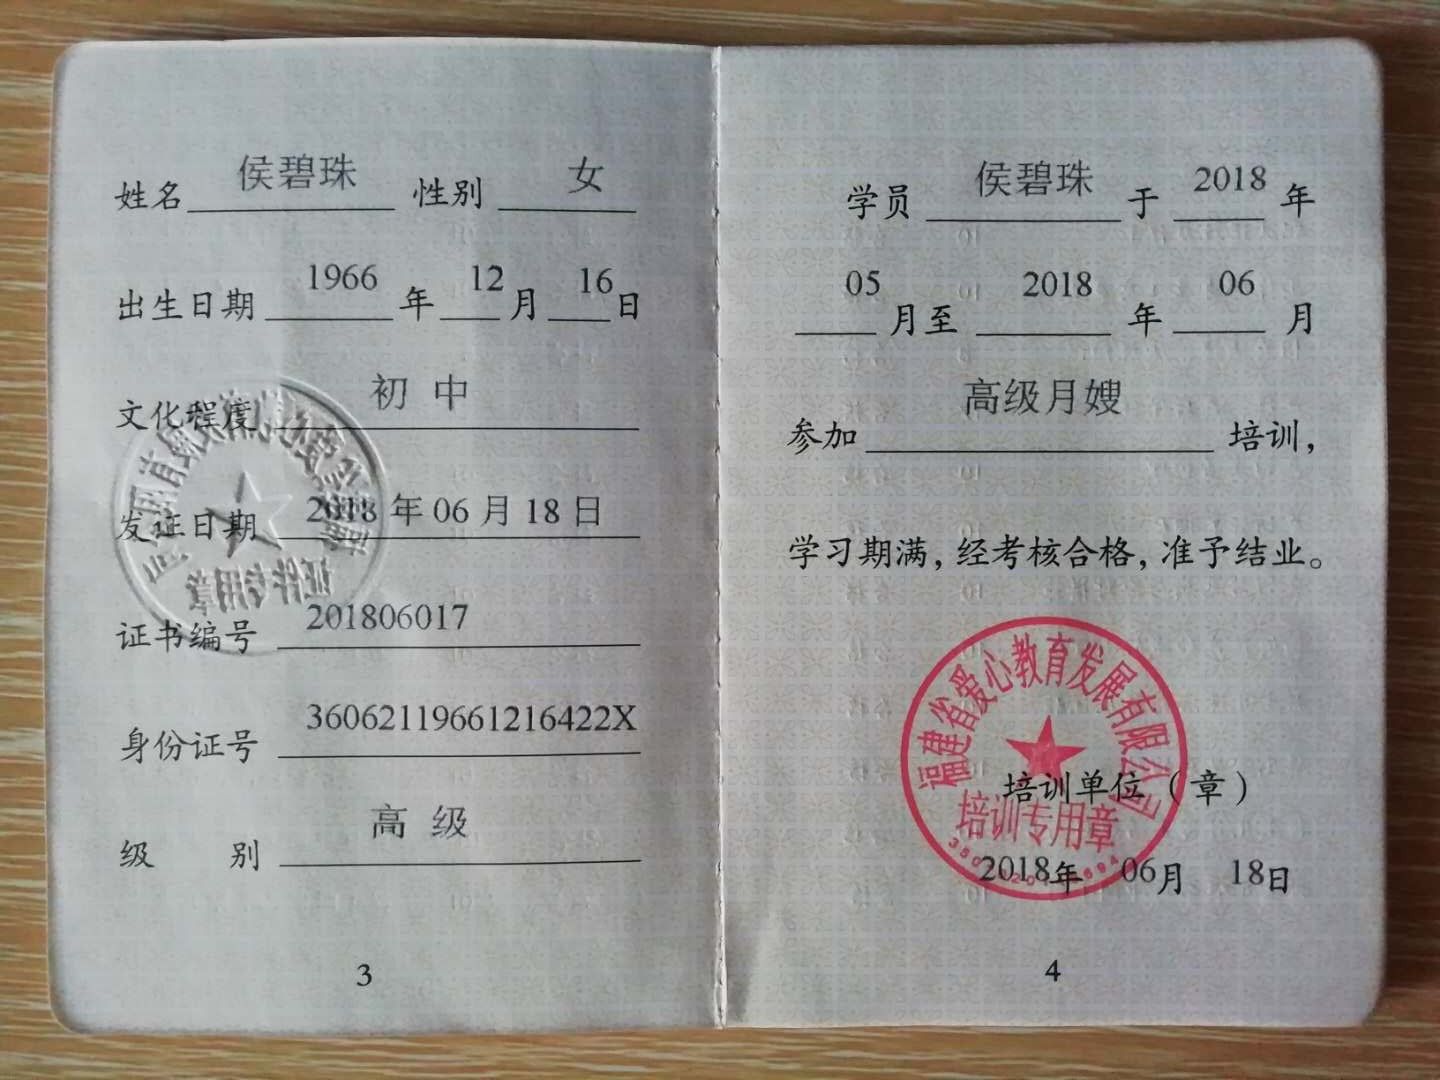 姓名 侯碧珠 性别 女
出生日期 1966 年 12 月 16 日
文化程度 初 中
发证日期 2018 年 06 月 18 日
证书编号 201806017
身份证号 36062119661216422X
级 别 高 级
3
证件专用章
学员 侯碧珠 于 2018 年
05 月至 2018 年 06 月
参加 高级月嫂 培训，
学习期满，经考核合格，准予结业。
福建省爱心教育发展有限公司
培训单位（章）
培训专用章
2018年 06月 18日
4